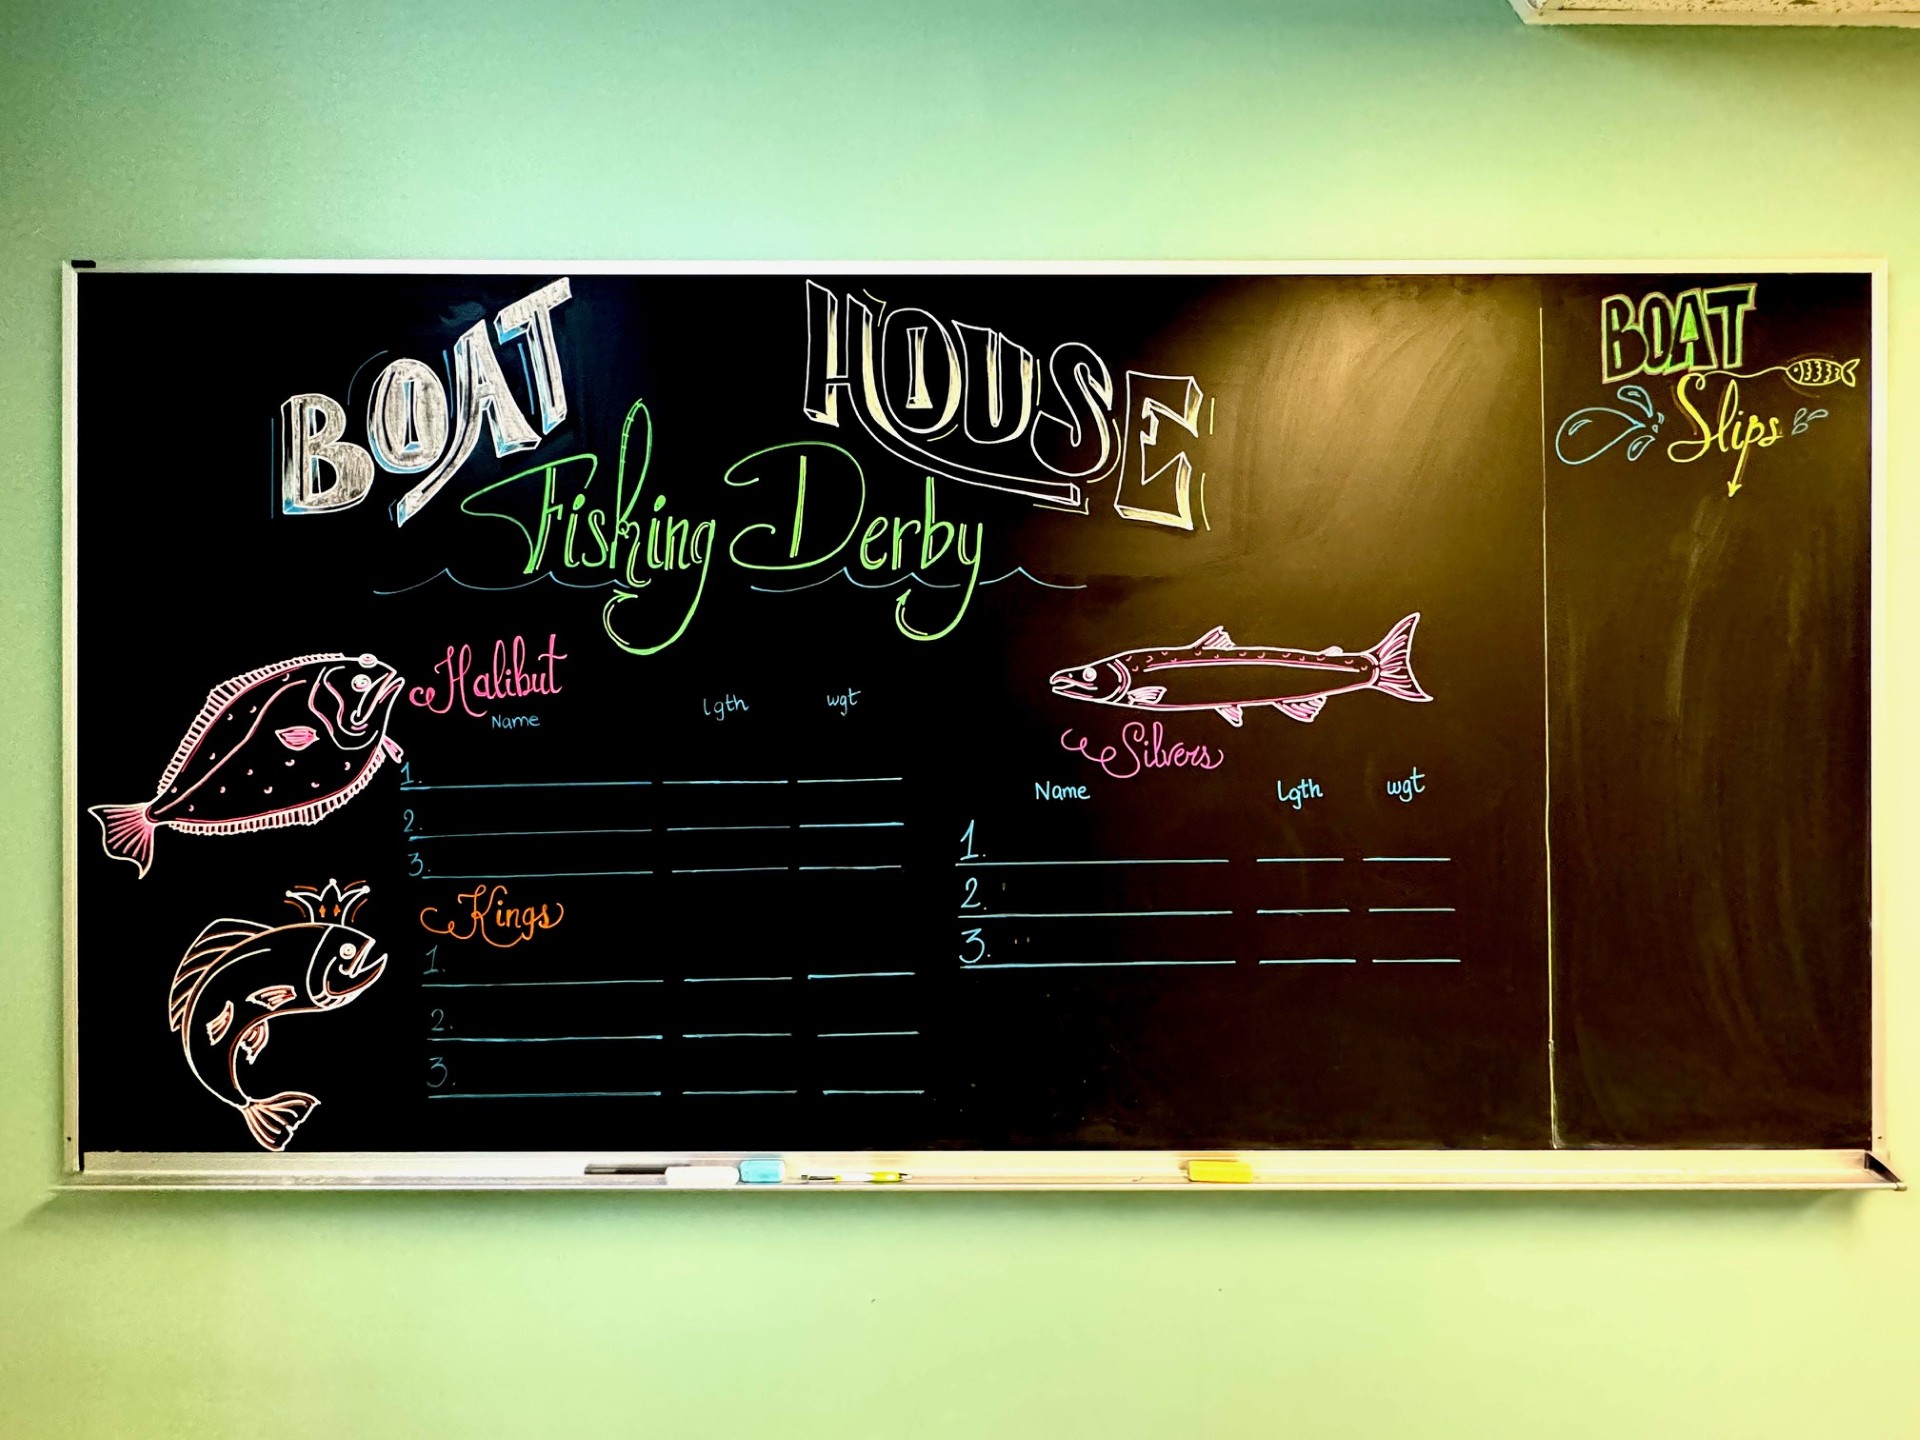 BOAT HOUSE
Fishing Derby
Halibut
Name lgth wgt
1.
2.
3.
Kings
1.
2.
3.
Silvers
Name lgth wgt
1.
2.
3.
BOAT
Slips